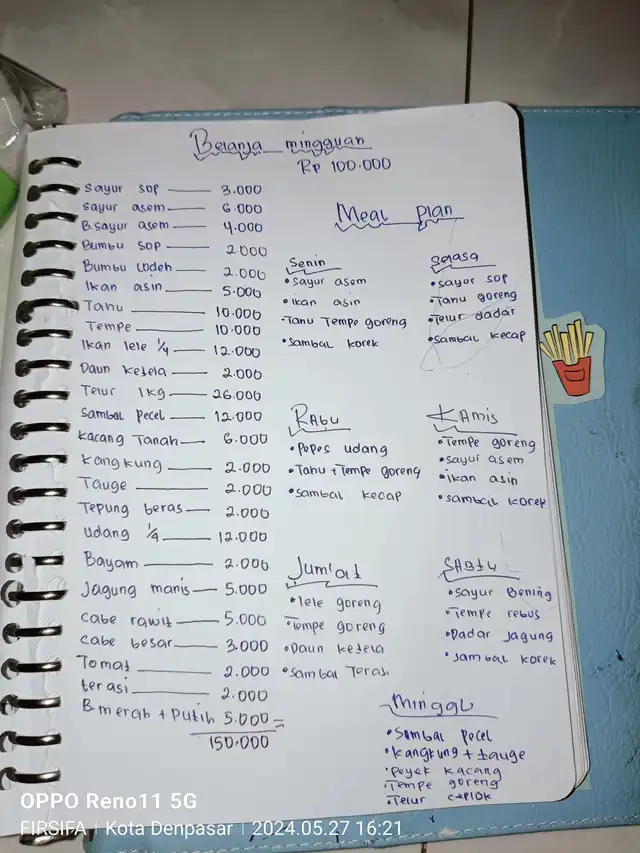 Belanja mingguan
Rp 100.000
Sayur sop 3.000
Sayur asem 6.000
B. sayur asem 4.000
Bumbu sop 2.000
Bumbu lodeh 2.000
Ikan asin 5.000
Tahu 10.000
Tempe 10.000
Ikan lele 1/4 12.000
Daun ketela 2.000
Telur 1kg 26.000
Sambal pecel 12.000
Kacang Tanah 6.000
Kangkung 2.000
Tauge 2.000
Tepung beras 2.000
Udang 1/4 12.000
Bayam 2.000
Jagung manis 5.000
Cabe rawit 5.000
Cabe besar 3.000
Tomat 2.000
terasi 2.000
B. merah + Putih 5.000 =
150.000
Meal plan
Senin
• Sayur asem
• Ikan asin
• Tahu Tempe goreng
• Sambal korek
Selasa
• Sayur sop
• Tahu goreng
• Telur dadar
• Sambal kecap
Rabu
• Pepes udang
• Tahu + Tempe goreng
• Sambal kecap
Kamis
• Tempe goreng
• Sayur asem
• Ikan asin
• Sambal korek
Jum'at
• Lele goreng
• Tempe goreng
• Daun ketela
• Sambal Terasi
SABtu
• Sayur Bening
• Tempe rebus
• Dadar Jagung
• Sambal korek
Minggu
• Sambal pecel
• Kangkung + tauge
• Peyek kacang
• Tempe goreng
• Telur ceplok
OPPO Reno11 5G
FIRSIFA | Kota Denpasar | 2024.05.27 16:21